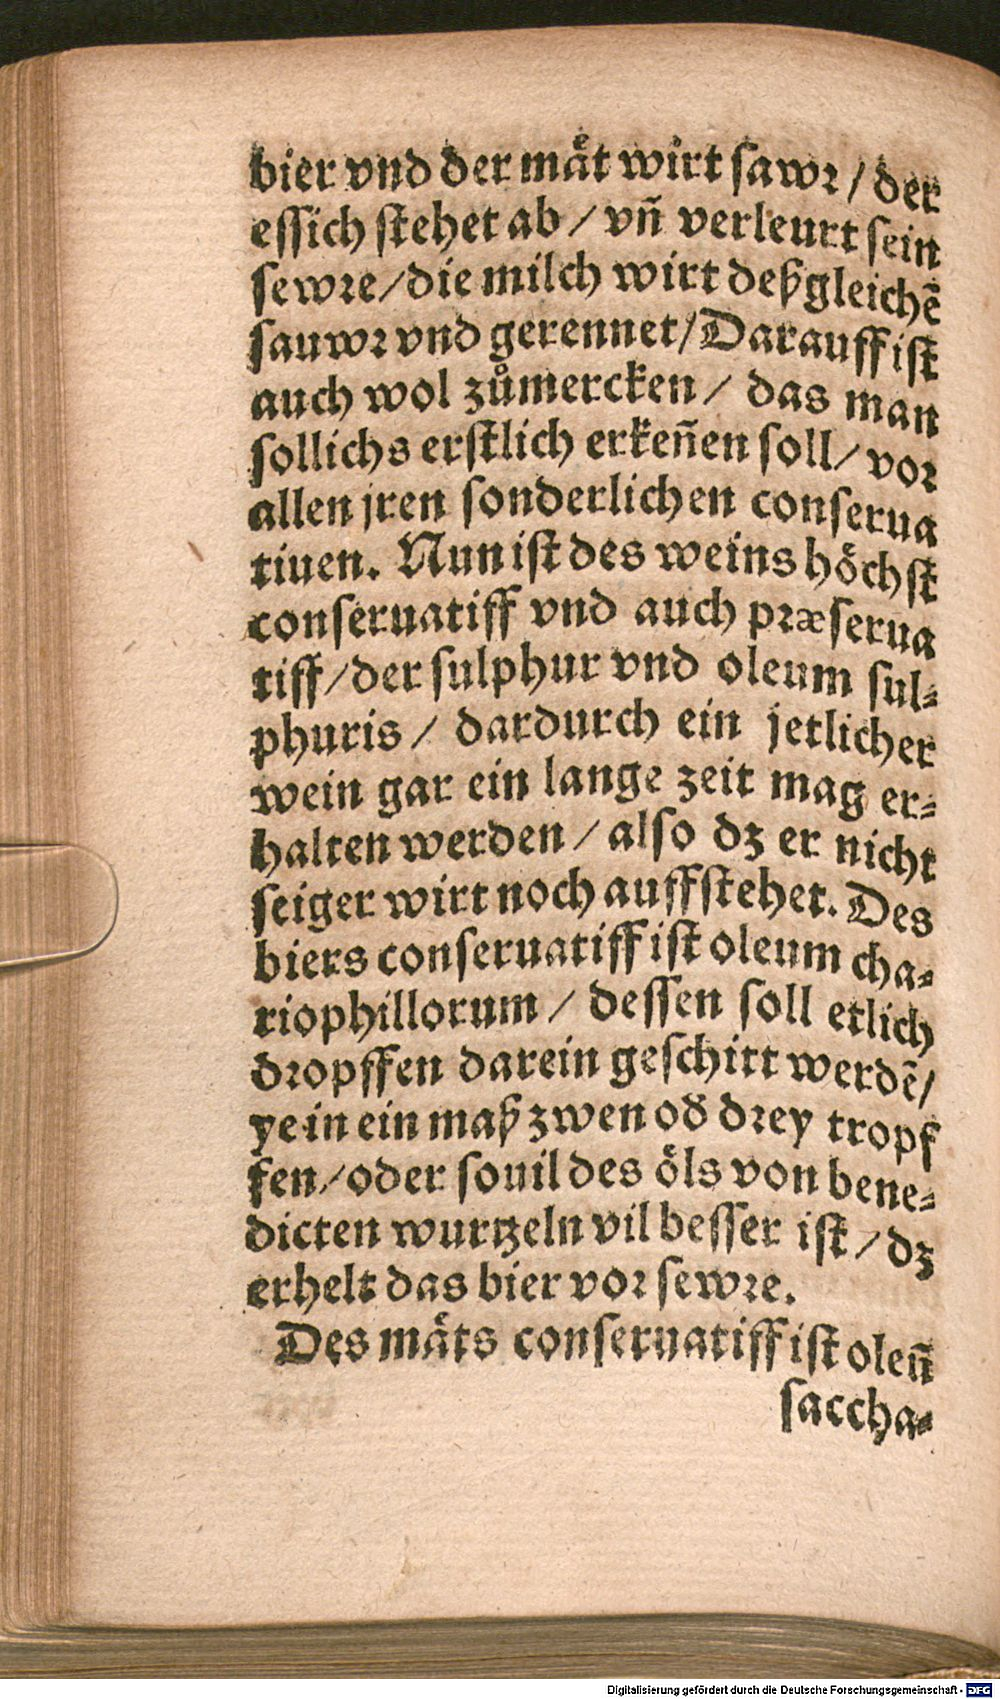 bier vnd der maͤt wirt ſawꝛ / der
eſſich ſtehet ab / vñ verleurt ſein
ſewꝛe / die milch wirt deßgleichẽ
ſauwꝛ vnd gerennet / Darauff iſt
auch wol zuͦmercken / das man
ſollichs erſtlich erkeñen ſoll / voꝛ
allen jren ſonderlichen conſerua
tiuen. Nun iſt des weins hoͤchſt
conſeruatiff vnd auch pꝛæſerua
tiff / der ſulphur vnd oleum ſul⸗
phuris / dardurch ein jetlicher
wein gar ein lange zeit mag er⸗
halten werden / alſo dꝫ er nicht
ſeiger wirt noch auffſtehet. Des
biers conſeruatiff iſt oleum cha⸗
riophillorum / deſſen ſoll etlich
dꝛopffen darein geſchitt werdẽ /
ye in ein maß zwen od̓ dꝛey tropf
fen / oder ſouil des oͤls von bene⸗
dicten wurtzeln vil beſſer iſt / dꝫ
erhelt das bier voꝛ ſewꝛe.
Des maͤts conſeruatiff iſt oleũ
ſaccha⸗
Digitalisierung gefördert durch die Deutsche Forschungsgemeinschaft - DFG